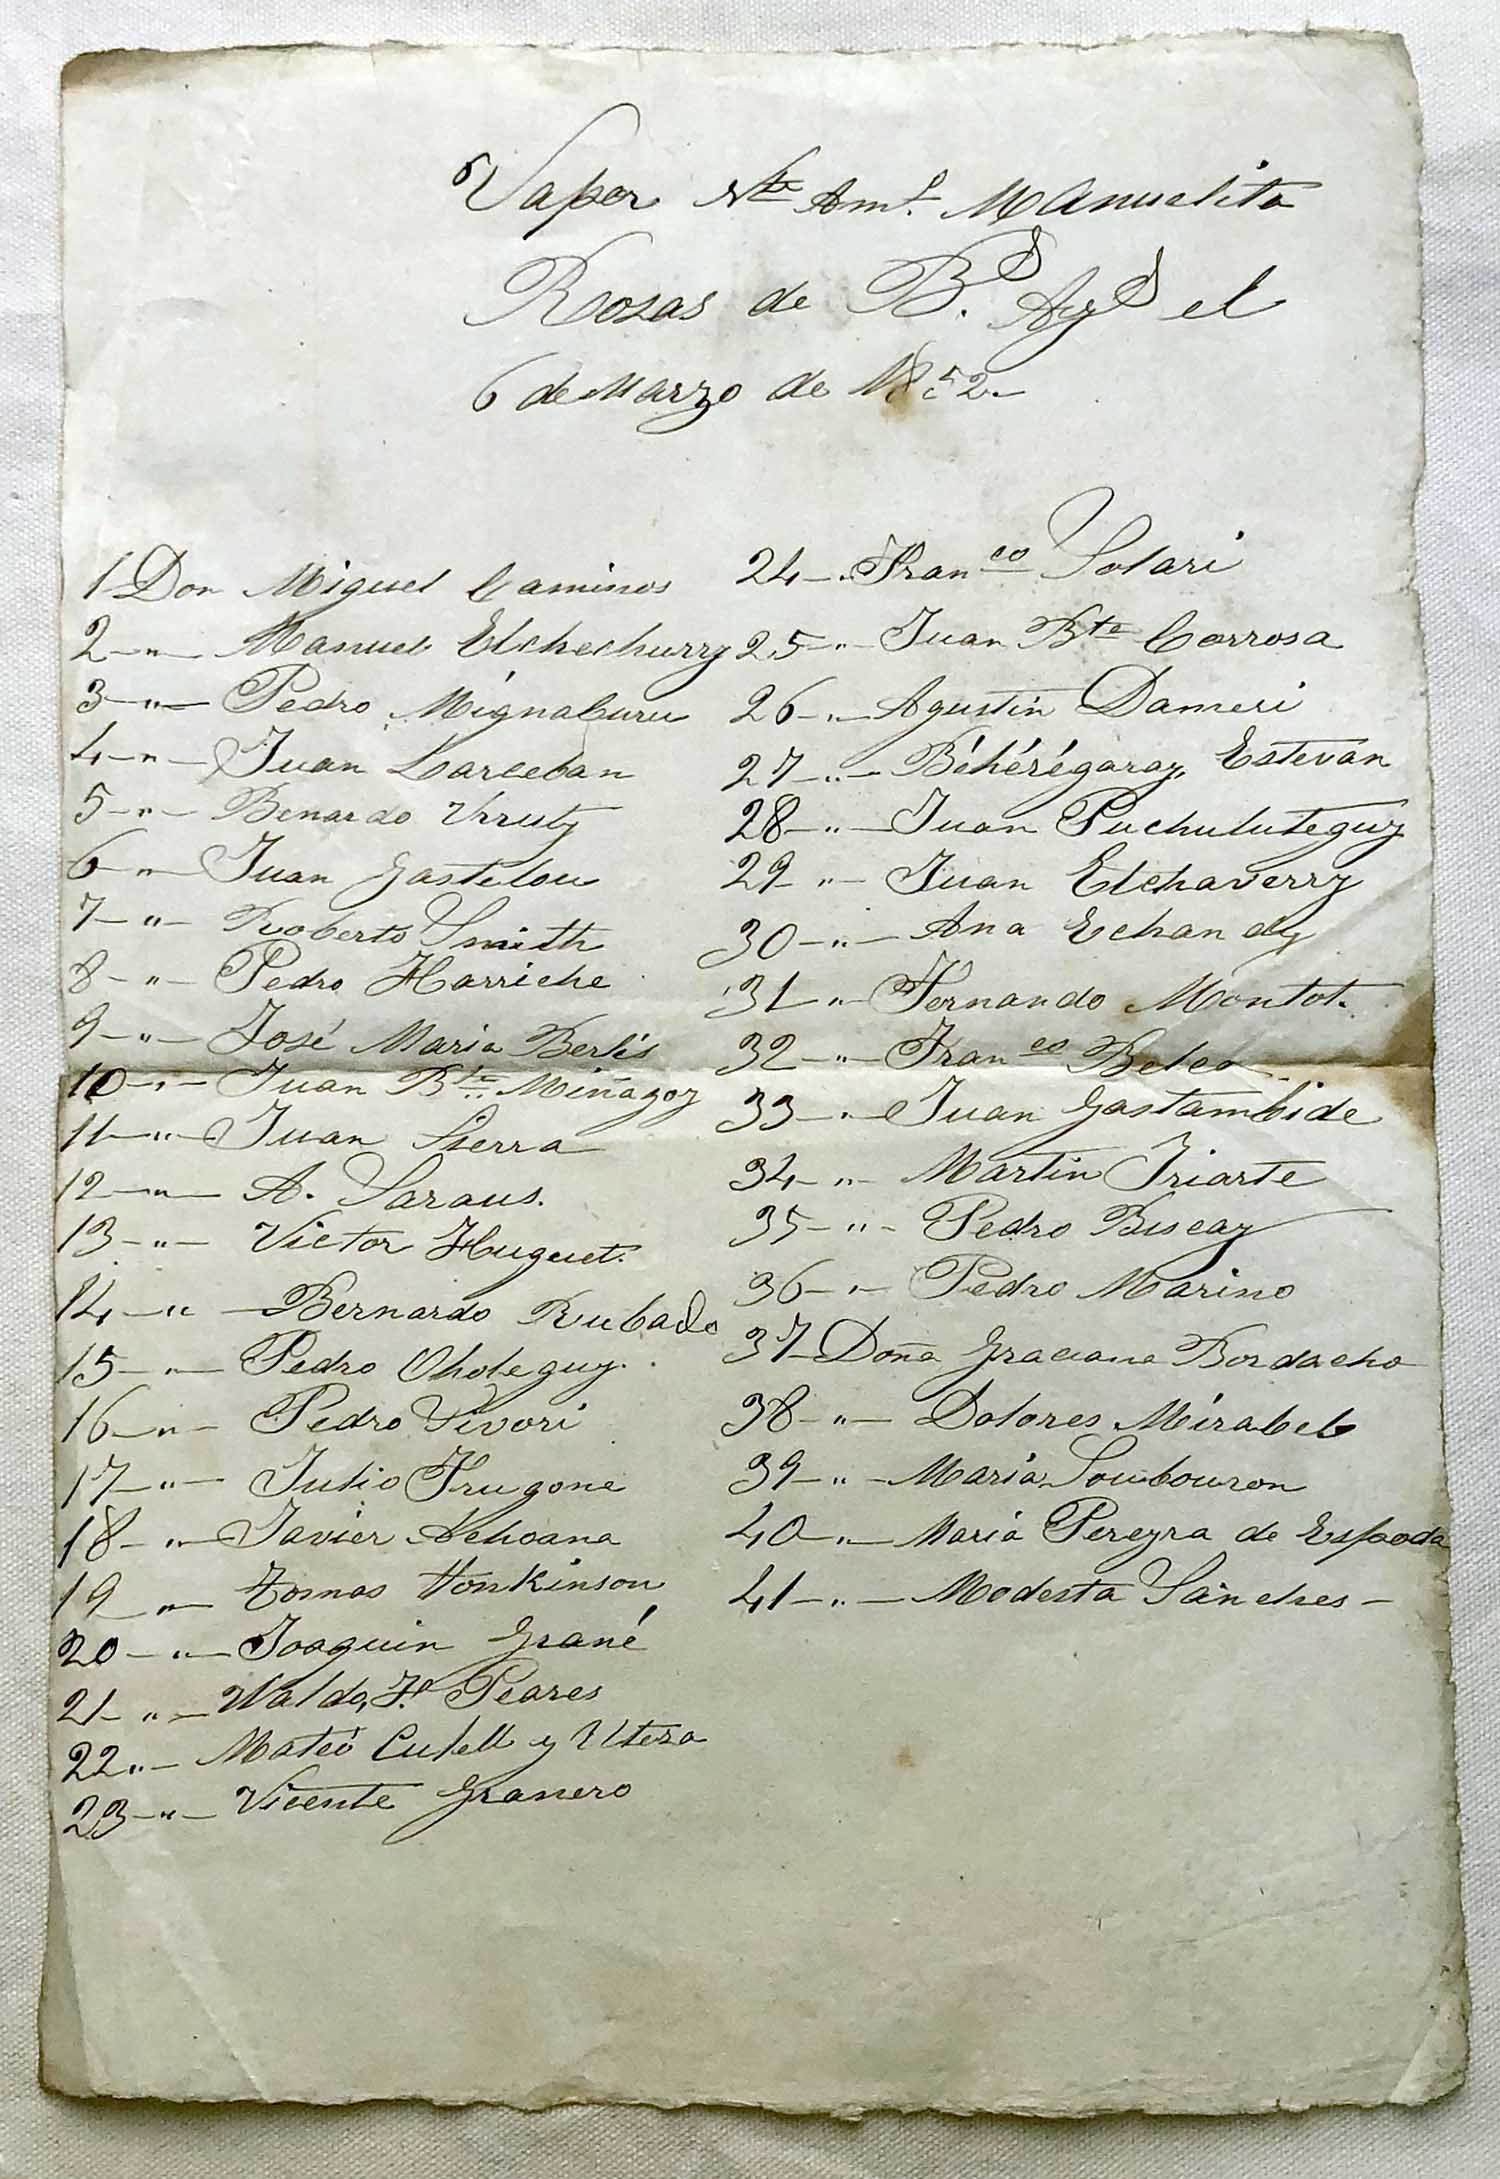 Vapor Nte Amo. Manuelita
Rosas de Bs. Ays el
6 de Marzo de 1852.
1 Don Miguel Caminos
2 " Manuel Etchechurry
3 " Pedro Mignaburu
4 " Juan Larceban
5 " Benardo Urruty
6 " Juan Gastelou
7 " Roberto Smith
8 " Pedro Harriche
9 " José Maria Berlis
10 " Juan Bte. Miñagoy
11 " Juan Sierra
12 " A. Saraus.
13 " Victor Huguet.
14 " Bernardo Rubado
15 " Pedro Oholeguy.
16 " Pedro Vivori
17 " Julio Frugone
18 " Javier Achoana
19 " Tomas Honkinson
20 " Joaquin Grané
21 " Waldo, Fo. Peares
22 " Mateo Cutell y Utera
23 " Vicente Granero
24 " Franco Solari
25 " Juan Bte Corrosa
26 " Agustin Dameri
27 " Béhérégaray, Estevan
28 " Juan Puchuluteguy
29 " Juan Etchaverry
30 " Ana Echandy
31 " Fernando Montot.
32 " Franco Beleo
33 " Juan Gastambide
34 " Martin Iriarte
35 " Pedro Biscay
36 " Pedro Marino
37 Doña Graciana Bordacho
38 " Dolores Mirabel
39 " Maria Soubouron
40 " Maria Pereyra de Espada
41 " Modesta Sanches